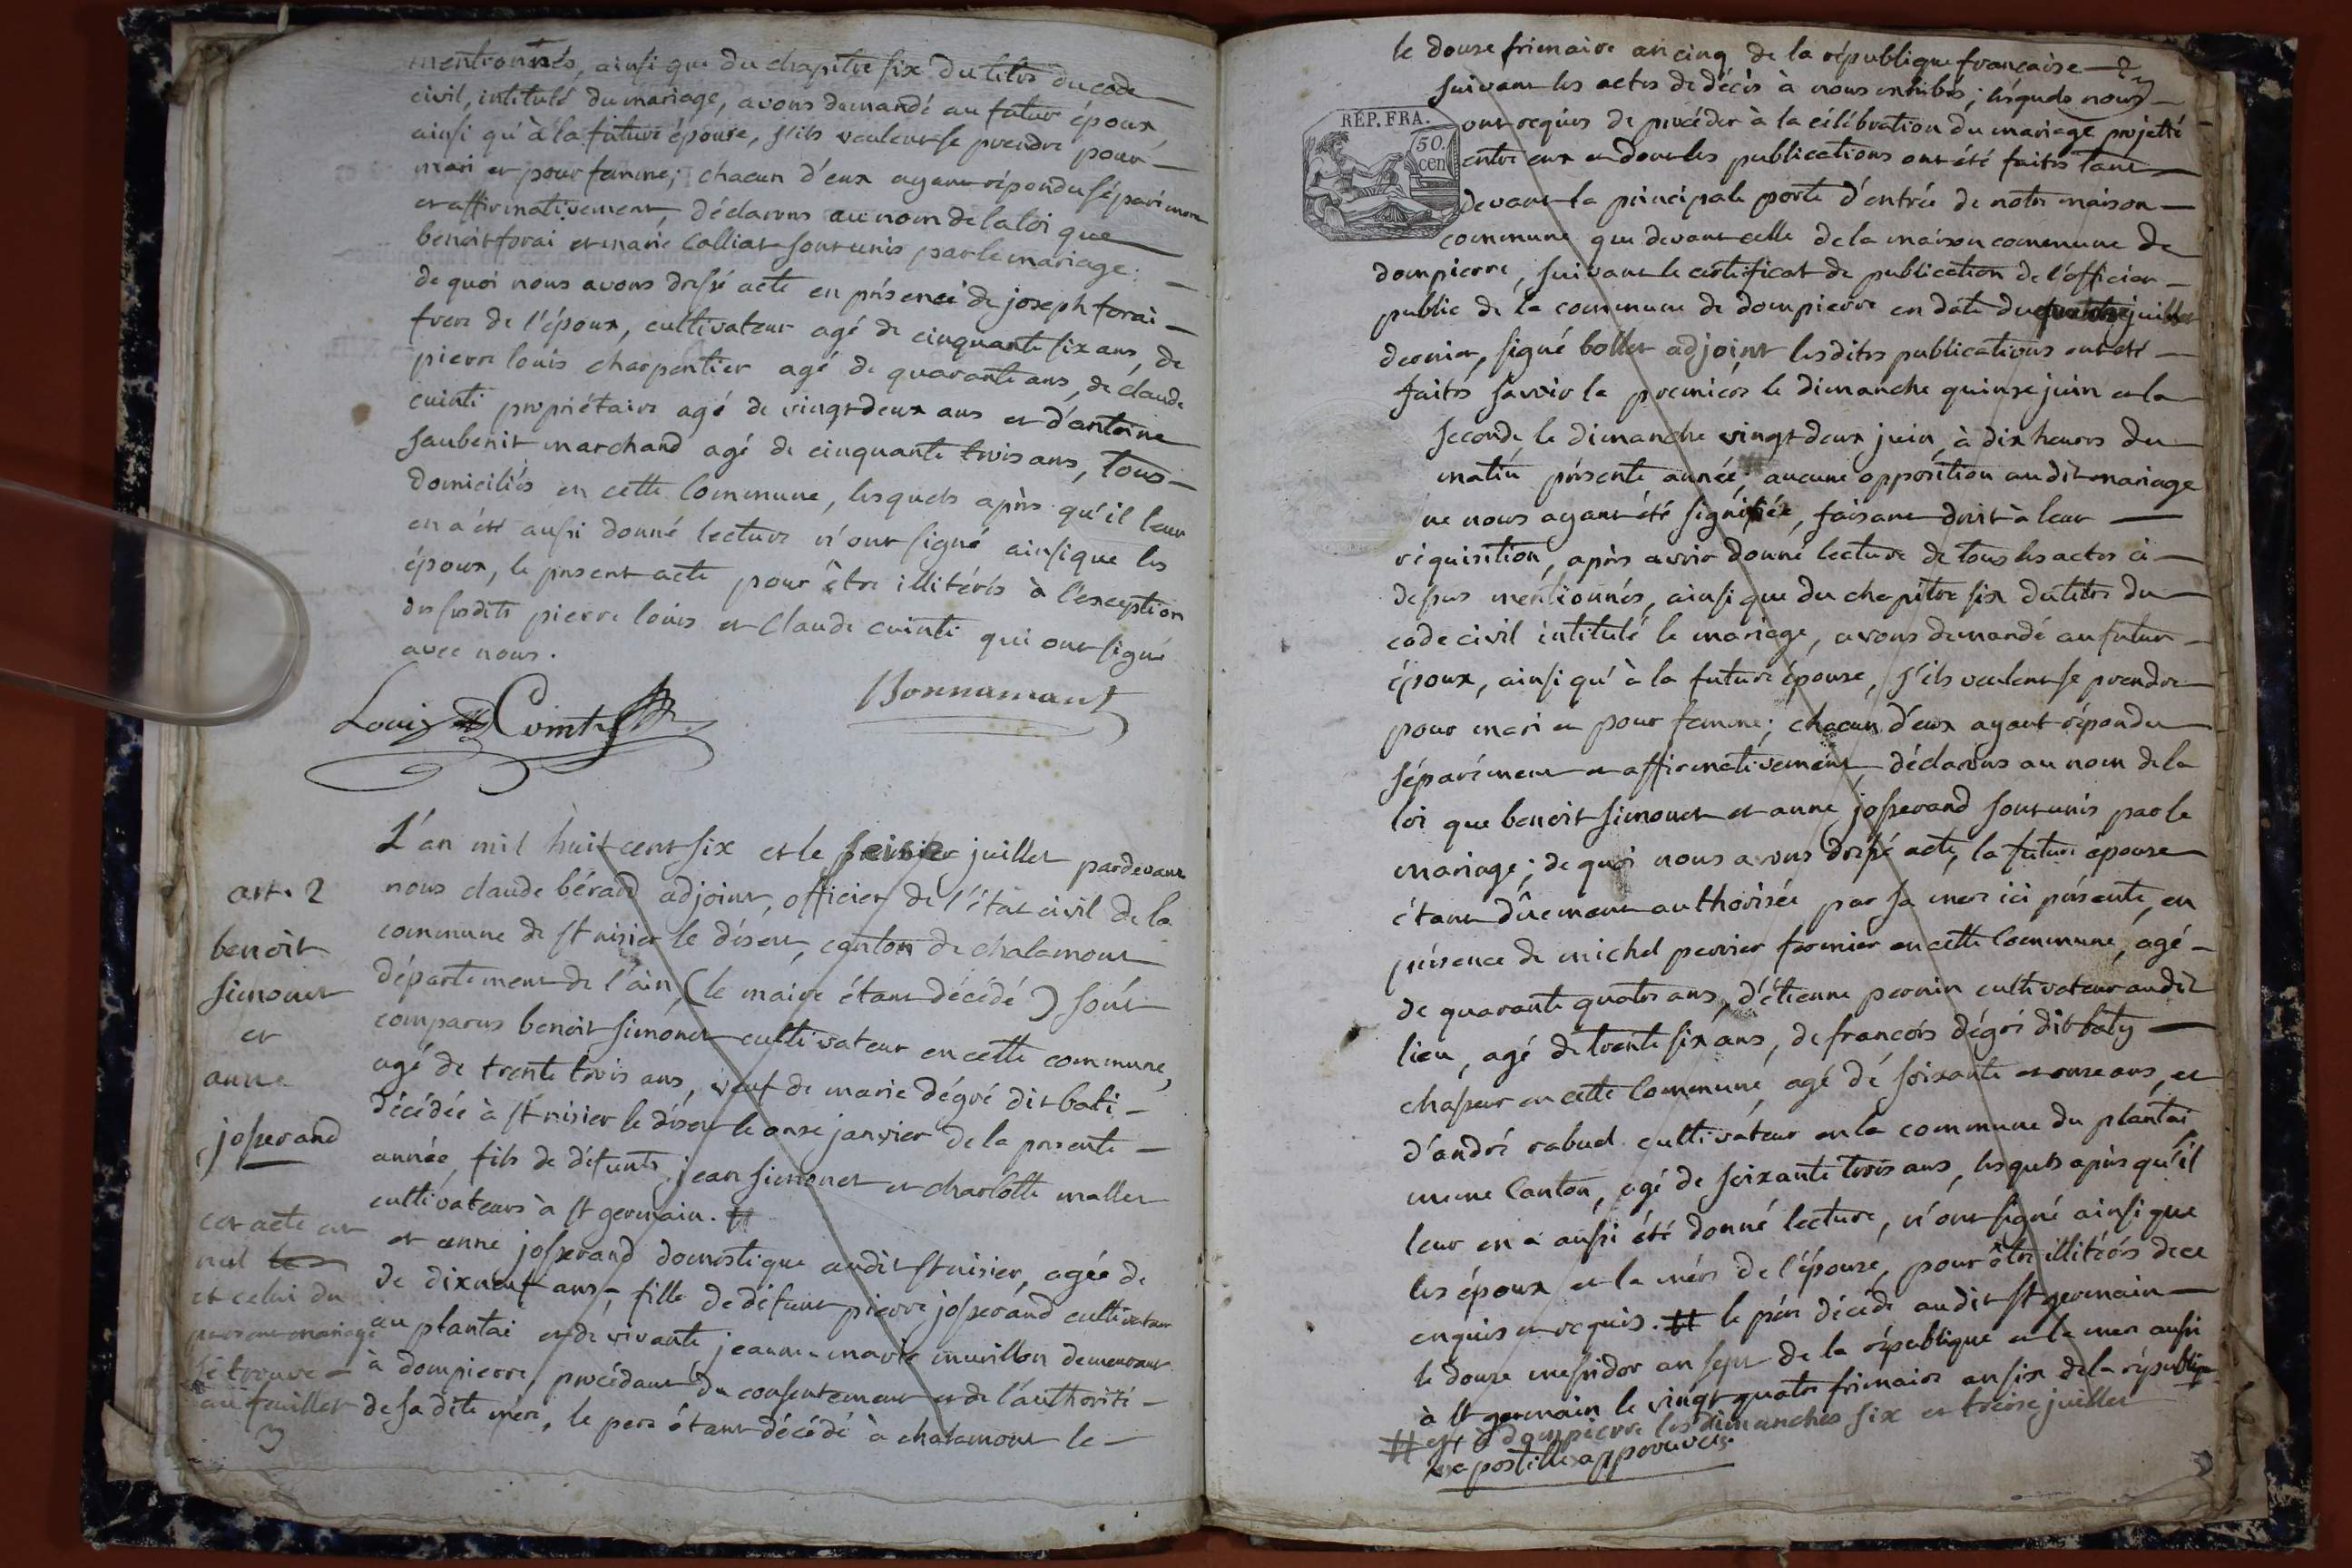 mentionnés, ainsi que du chapitre six du titre du code
civil, intitulé du mariage, avons demandé au futur époux
ainsi qu'à la future épouse, s'ils veulent se prendre pour
mari et pour femme; chacun d'eux ayant répondu séparément
et affirmativement, déclarons au nom de la loi que
benoit forai et marie Colliat sont unis par le mariage:
de quoi nous avons dressé acte en présence de joseph forai
frere de l'époux, cultivateur agé de cinquante six ans, de
pierre louis charpentier agé de quarante ans, de claude
cuinti propriétaire agé de vingt deux ans et d'antoine
saubenit marchand agé de cinquante trois ans, tous
domiciliés en cette Commune, lesquels après qu'il leur
en a été aussi donné lecture n'ont signé ainsi que les
époux, le present acte pour être illitérés à l'exception
des susdits pierre louis et Claude cuinti qui ont signé
avec nous.
Louis Cointi Bonnamant
L'an mil huit cent six et le juillet pardevant
nous claude bérard adjoint, officier de l'état civil de la
commune de st nisier le désert, canton de chalamont
département de l'ain, (le maire étant décédé) sont
comparus benoit simonet cultivateur en cette commune,
agé de trente trois ans, veuf de marie dégré dit bati
décédée à st nisier le désert le onze janvier de la presente
année, fils de défunts jean simonet et charlotte mallet
cultivateurs à st germain. #
et anne josserand domestique audit st nisier, agée de
de dixneuf ans, fille de défunt pierre josserand cultivateur
au plantai et de vivante jeanne marie murillon demeurant
à dompierre, procédant du consentement et de l'authorité
de sa dite mère, le pere étant décédé à chalamont le
art. 2
benoit
simonet
et
anne
josserand
cet acte est
nul
et celui du
present mariage
se trouve
au feuillet
3
le douze frimaire an cinq de la république française
suivant les actes de décès à nous exhibés; lesquels nous
RÉP. FRA.
50.
cen
ont requis de procéder à la célébration du mariage projetté
entre eux et dont les publications ont été faites tant
devant la principale porte d'entrée de notre maison
commune que devant celle de la maison commune de
dompierre, suivant le certificat de publication de l'officier
public de la commune de dompierre en date du juillet
dernier, signé bollet adjoint lesdites publications ont été
faites savoir la premiere le dimanche quinze juin et la
seconde le dimanche vingt deux juin, à dix heures du
matin présente année, # aucune opposition audit mariage
ne nous ayant été signifiée, faisant droit à leur
réquisition, après avoir donné lecture de tous les actes ci
dessus mentionnés, ainsi que du chapitre six du titre du
code civil intitulé le mariage, avons demandé au futur
époux, ainsi qu'à la future épouse, s'ils veulent se prendre
pour mari et pour femme; chacun d'eux ayant répondu
séparément et affirmativement, déclarons au nom de la
loi que benoit simonet et anne josserand sont unis par le
mariage; de quoi nous avons dressé acte, la future épouse
étant dûement authorisée par sa mere ici présente, en
présence de michel perrier fermier en cette Commune, agé
de quarante quatre ans, d'étienne pernin cultivateur audit
lieu, agé de trente six ans, de françois dégré dit baty
chasseur en cette Commune, agé de soixante et onze ans, et
d'andré rabuel cultivateur en la commune du plantai
meme Canton, agé de soixante trois ans, lesquels après qu'il
leur en a aussi été donné lecture, n'ont signé ainsi que
les époux et la mère de l'épouse, pour être illitérés de ce
enquis et requis. # le père décédé audit st germain
le douze messidor an sept de la république et la mere aussi
à st germain le vingt quatre frimaire an six de la républiq
# et à dompierre les dimanches six et treize juillet
apostilles approuvées.